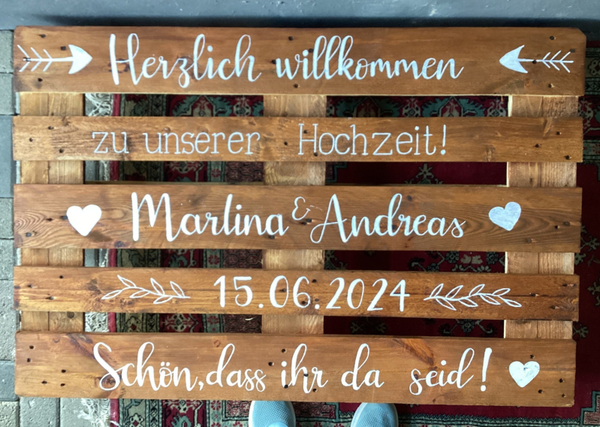 Herzlich willkommen
zu unserer Hochzeit!
Martina & Andreas
15.06.2024
Schön, dass ihr da seid!